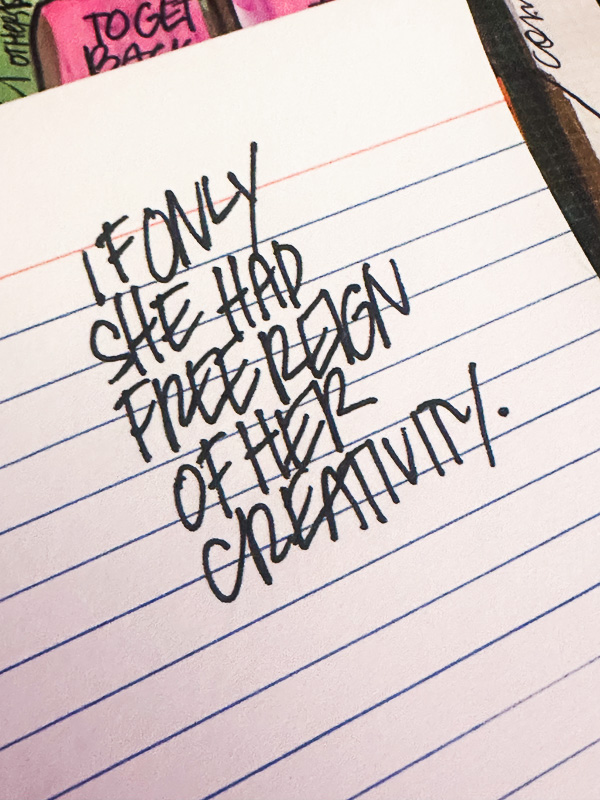 TO GET
BACK
IF ONLY
SHE HAD
FREE REIGN
OF HER
CREATIVITY.